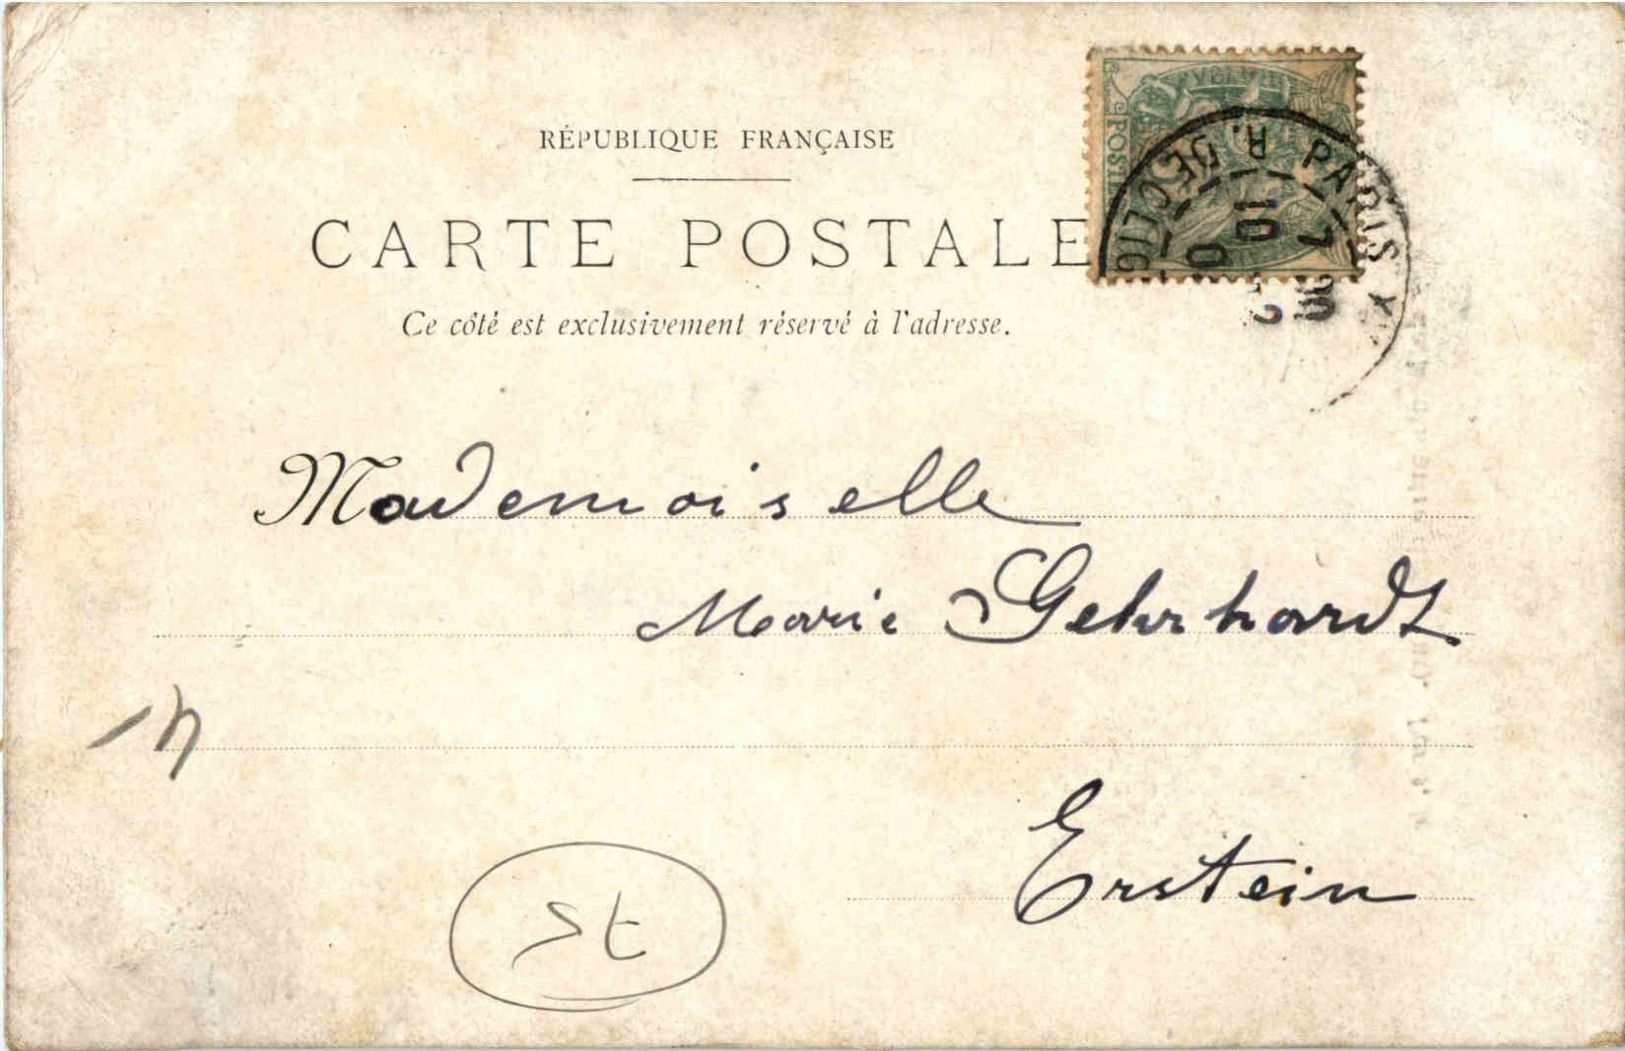 RÉPUBLIQUE FRANÇAISE
CARTE POSTALE
Ce côté est exclusivement réservé à l'adresse.
PARIS
R.
10
Mademoiselle
Marie Gehrhardt
Erstein
St